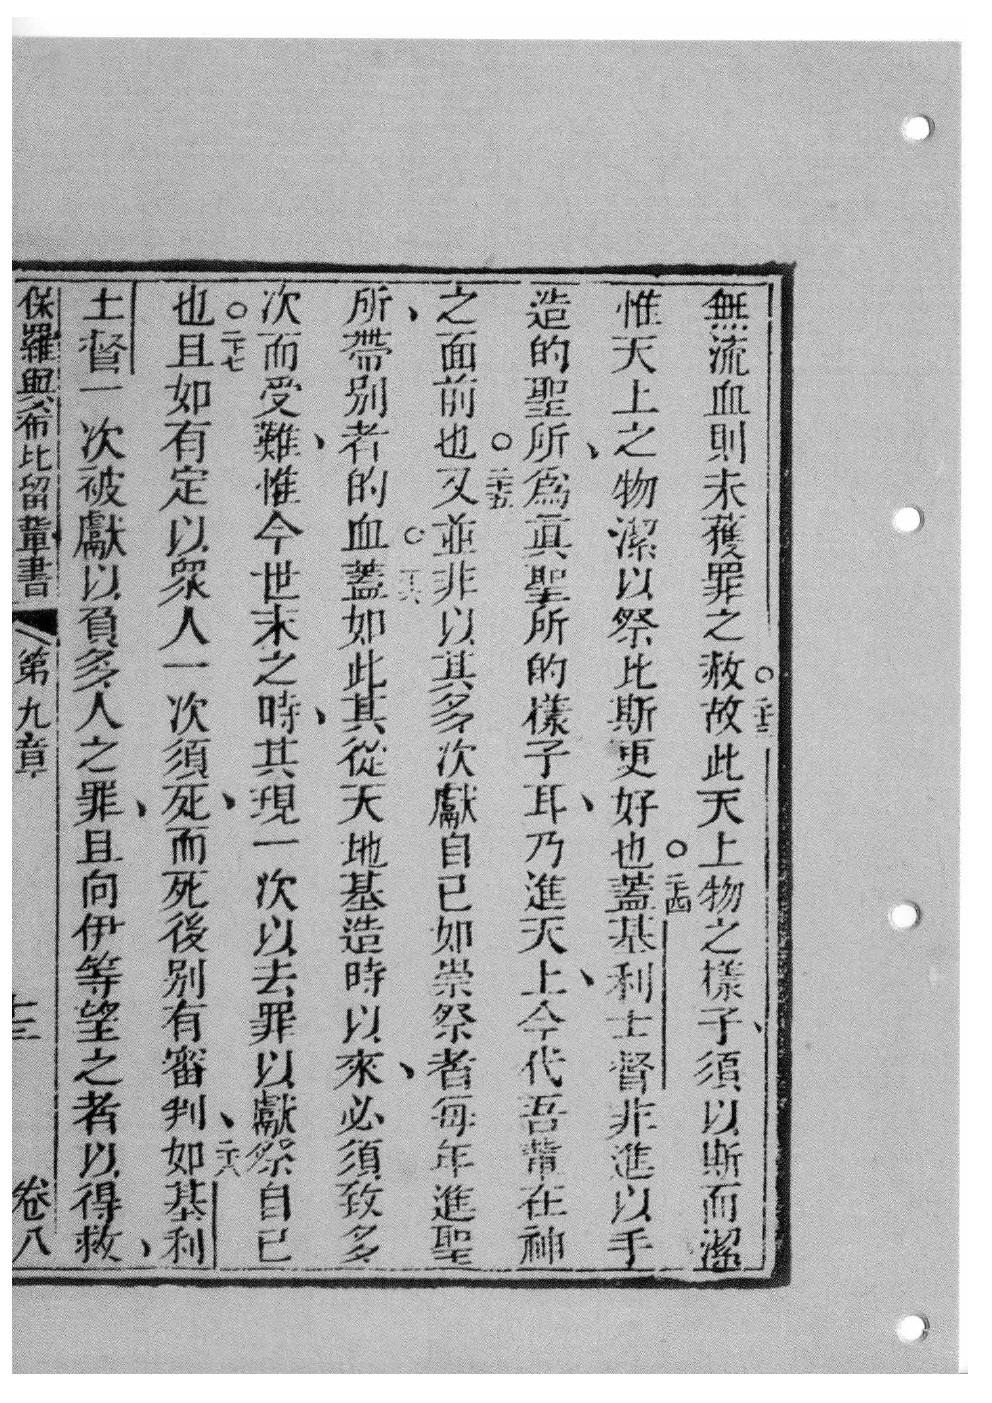 無流血則未獲罪之赦○二十三故此天上物之樣子、須以斯而潔
惟天上之物潔以祭比斯更好也○二十四蓋基利士督非進以手
造的聖所、爲眞聖所的樣子耳、乃進天上、今代吾輩在神
之面前也○二十五又並非以其多次獻自已如崇祭者每年進聖
所、帶別者的血○二十六蓋如此其從天地基造時以來、必須致多
次而受難、惟今世末之時、其現一次以去罪以獻祭自已
也○二十七且如有定以眾人一次須死、而死後別有審判、二十八如基利
士督一次被獻以負多人之罪、且向伊等望之者以得救、
保羅與希比留輩書 第九章 十三 卷八